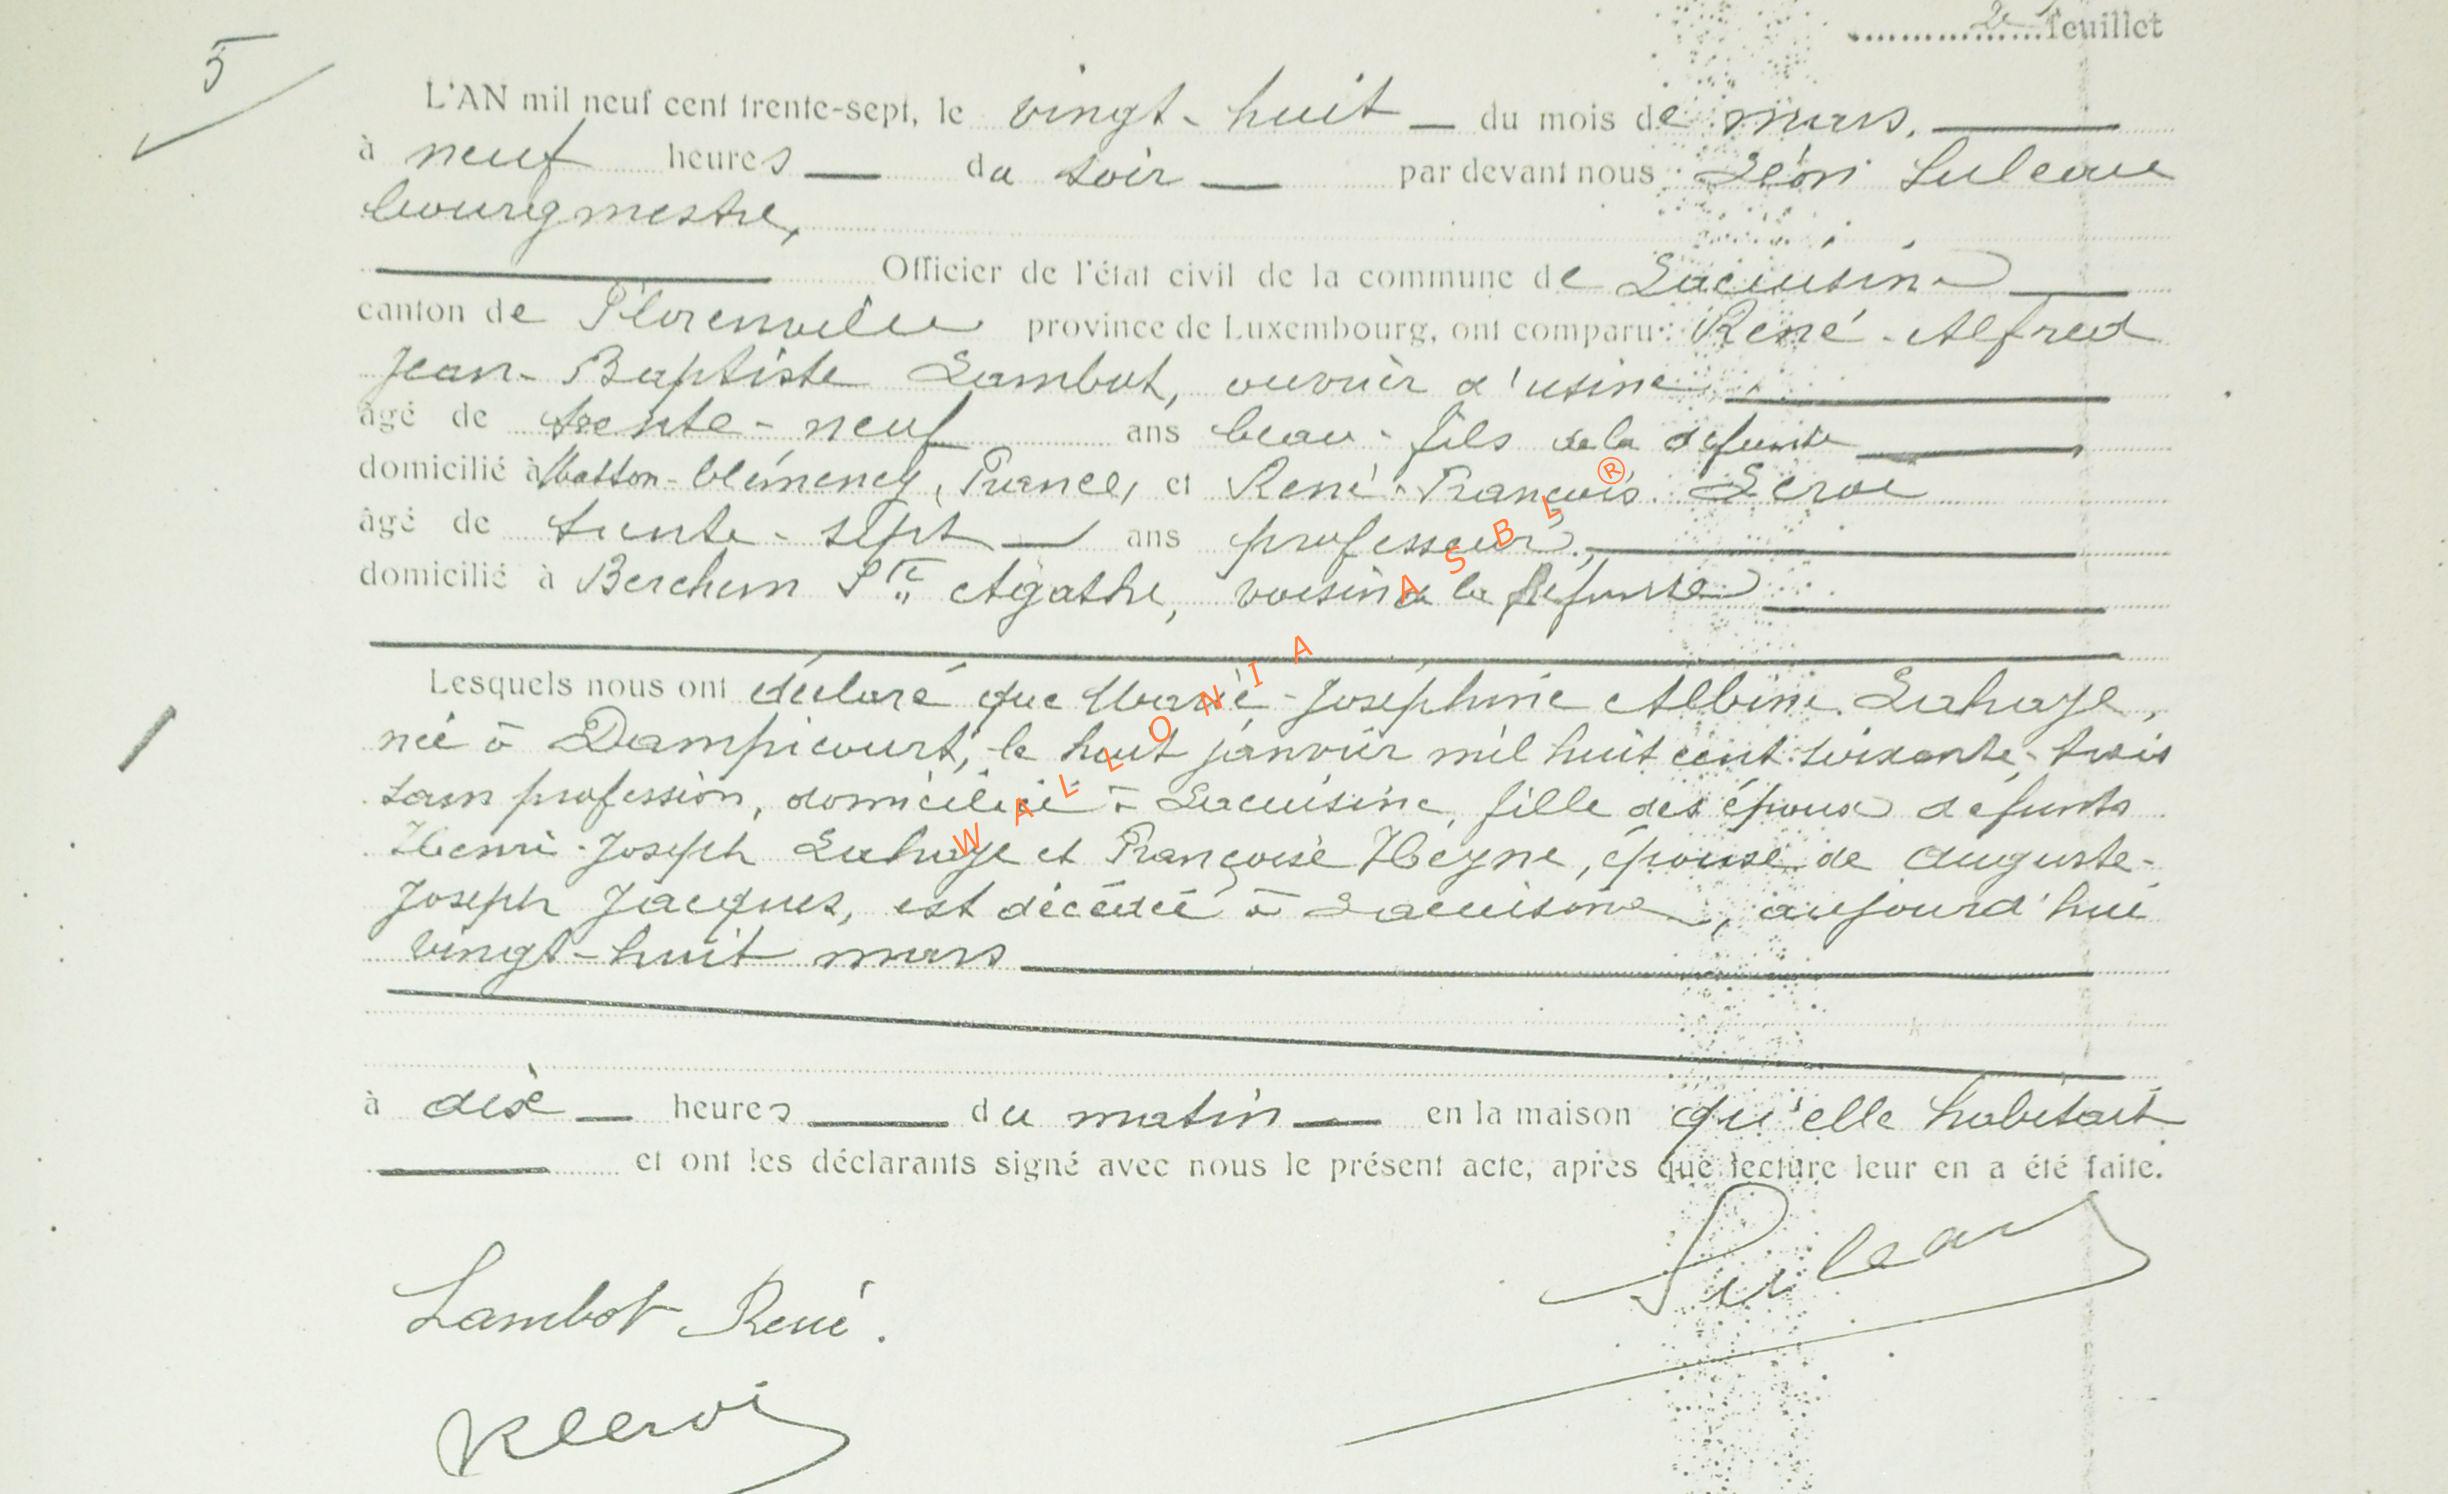 2e feuillet
5
L'AN mil neuf cent trente-sept, le vingt-huit du mois de mars,
à neuf heures du soir par devant nous Léon Suleau
bourgmestre,
Officier de l'état civil de la commune de Lacuisine
canton de Florenville province de Luxembourg, ont comparu: René-Alfred
Jean-Baptiste Lambot, ouvrier d'usine
âgé de trente-neuf ans beau-fils de la défunte
domicilié à Matton-Clémency, France, et René-François Leroi
âgé de trente-sept ans professeur,
domicilié à Berchem Ste Agathe, voisin de la défunte
Lesquels nous ont déclaré que Marie-Joséphine Albine Lahaye,
née à Dampicourt, le huit janvier mil huit cent soixante-trois
sans profession, domiciliée à Lacuisine, fille des époux défunts
Henri-Joseph Lahaye et Françoise Heyne, épouse de Auguste-
Joseph Jacques, est décédée à Lacuisine, aujourd'hui
vingt-huit mars
à dix heures du matin en la maison qu'elle habitait
et ont les déclarants signé avec nous le présent acte, après que lecture leur en a été faite.
Suleau
Lambot René.
RLeroi
WALLONIA ASBL ®